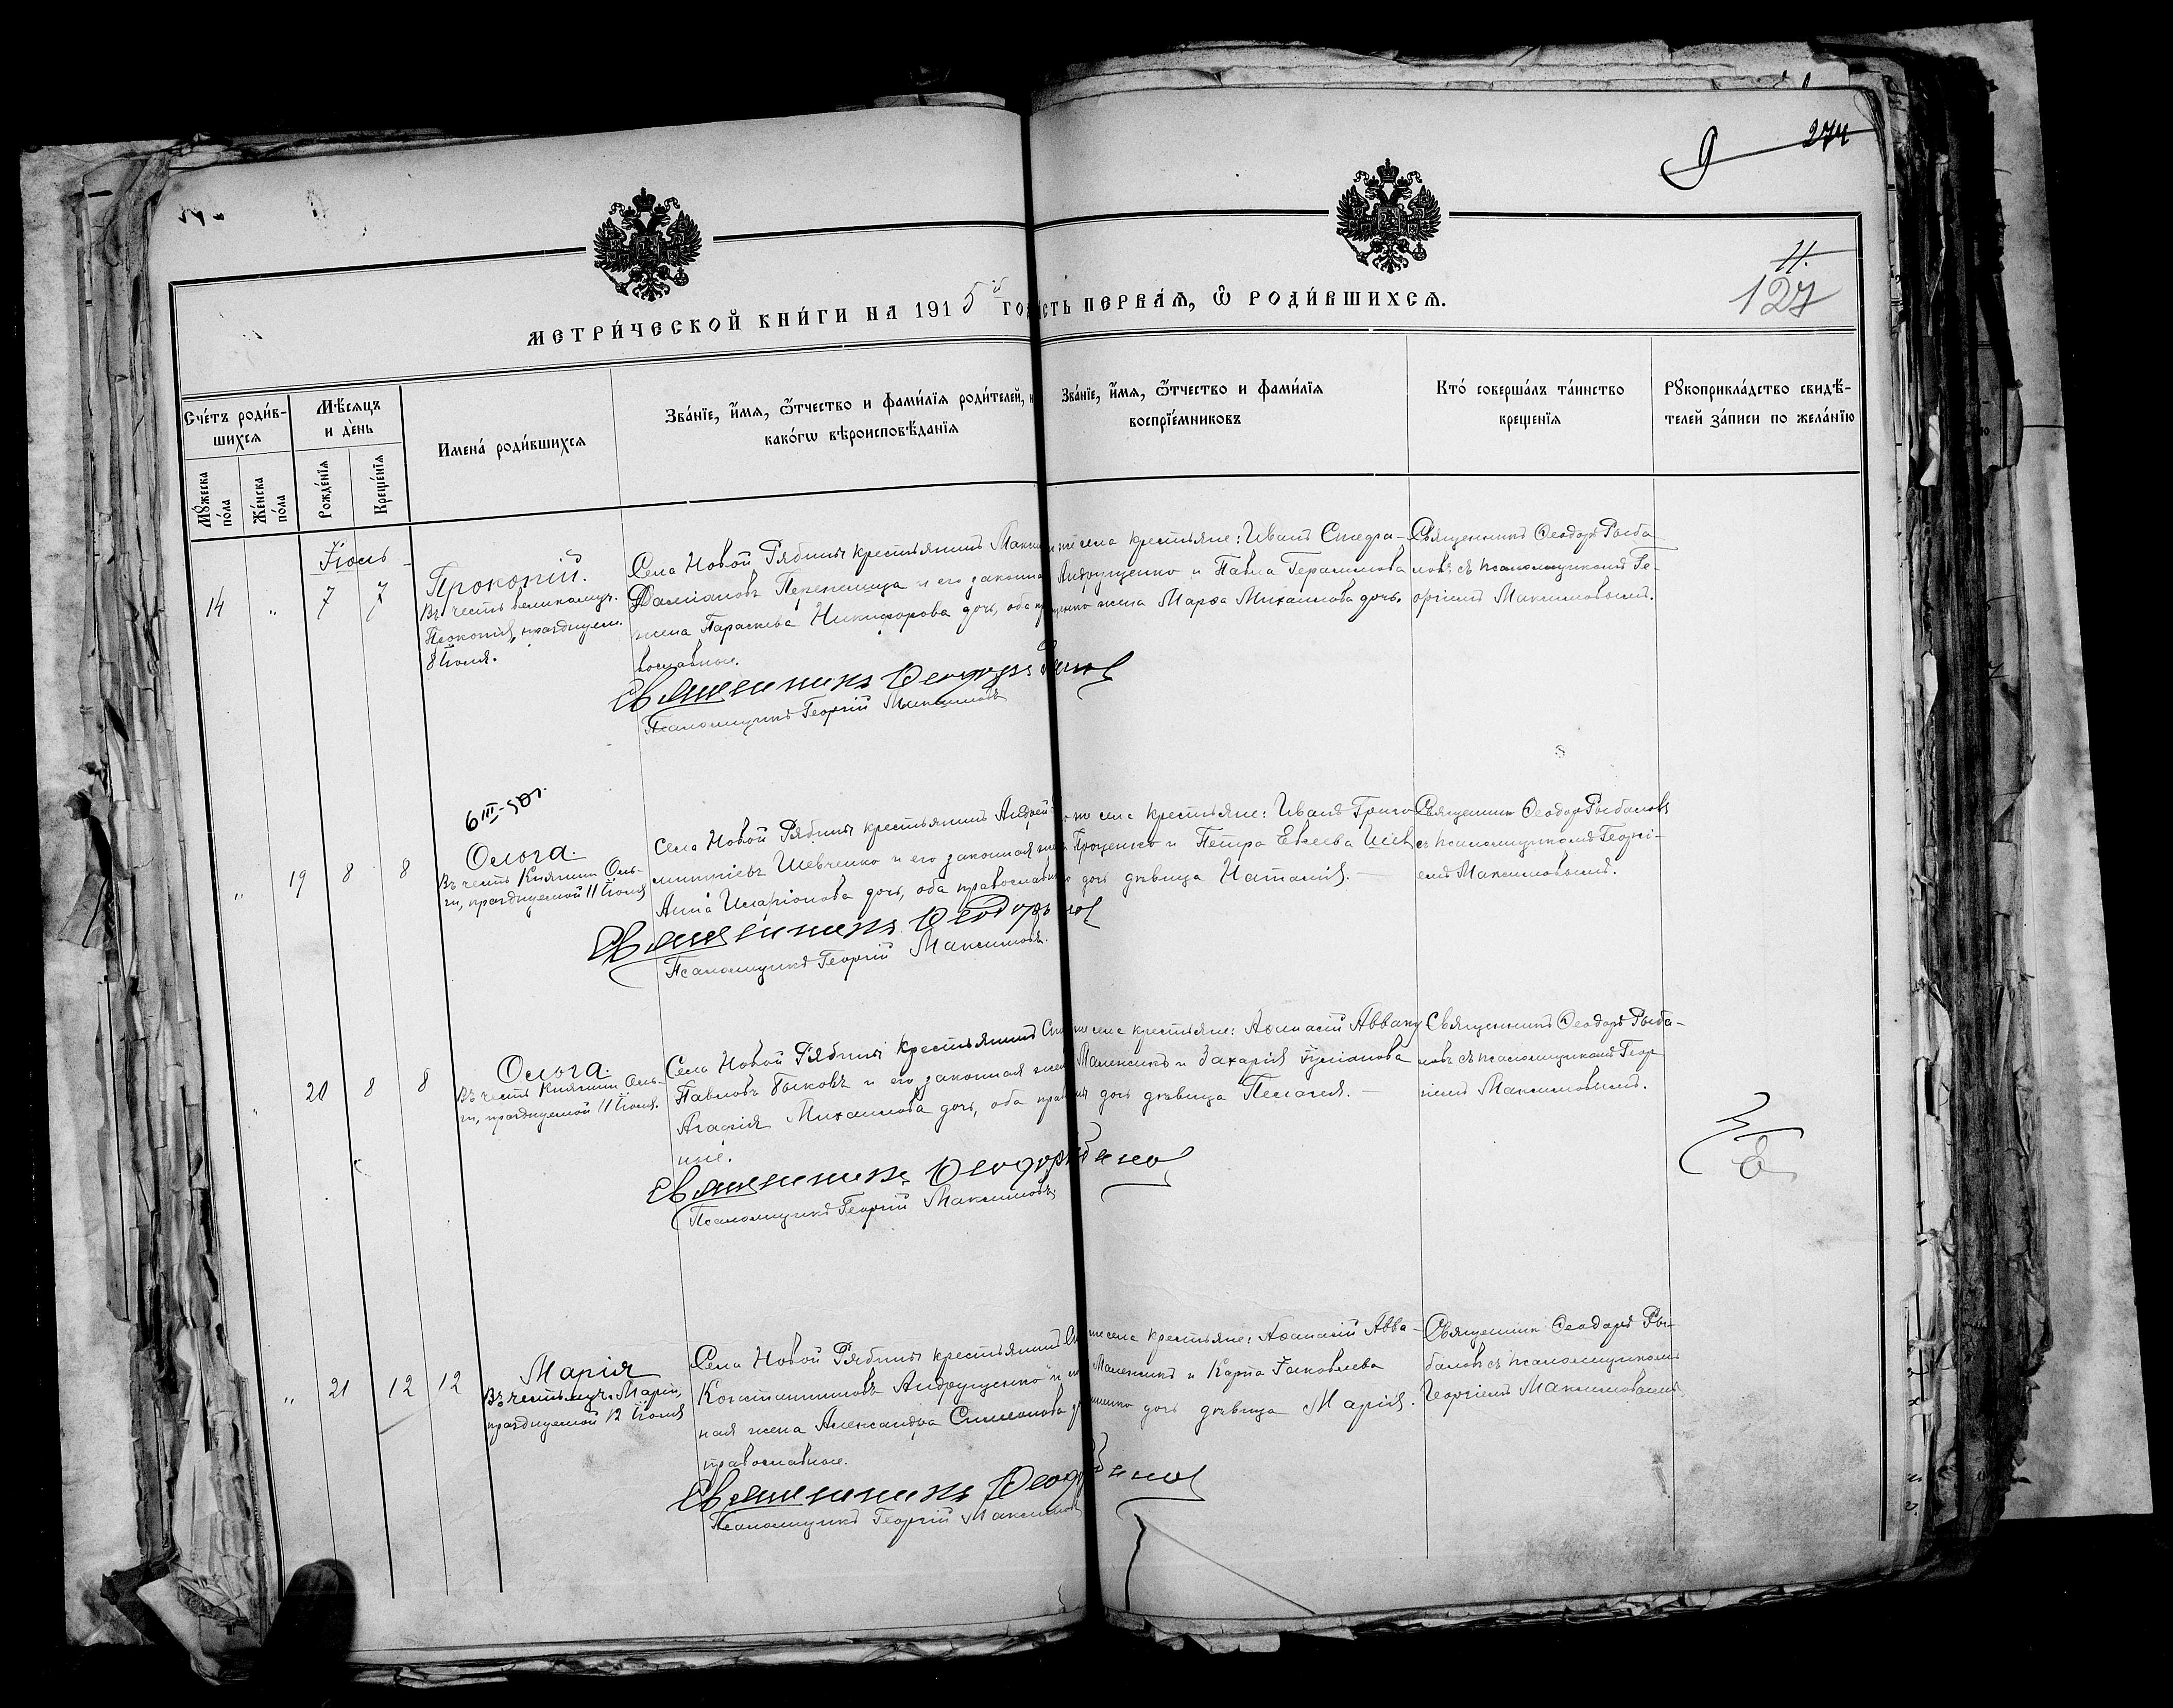 274
9
11.
127
МЕТРИ́ЧЕСКОЙ КНИ́ГИ НА 1915й ГО
СТЬ ПЕРВА́Ѧ, Ѽ РОДИ́ВШИХСѦ.
Сче́тъ роди́в-
шихсѧ
Мꙋ́жеска по́ла
Же́нска по́ла
Мѣ́сѧцъ и де́нь
Рожде́нїѧ
Креще́нїѧ
Имена́ роди́вшихсѧ
Зва́нїе, и́мѧ, ѻ́тчество и фами́лїѧ роди́телей, и
како́гѡ вѣроисповѣ́данїѧ
Зва́нїе, и́мѧ, ѻ́тчество и фами́лїѧ
воспрїе́мниковъ
Кто́ соверша́лъ та́инство
креще́нїѧ
Рꙋкоприкла́дство свидѣ́-
телей за́писи по жела́нїю
Іюль
14 „ 7 7
Прокопій.
Въ честь великомуч.
Прокопія, празднуем.
8 Іюля.
Села Новой Рябины крестьянинъ Макси
Даміановъ Перепелица и его законна
жена Параскева Никифорова дочь, оба пр
вославные.
Священникъ Ѳеодоръ
Псаломщикъ Георгій Максимовъ
же села крестьяне: Иванъ Стефа-
Андрущенко и Павла Герасимова
щенко жена Марѳа Михаилова дочь.
Священникъ Ѳеодоръ Рыба
новъ съ псаломщикомъ Ге-
оргіемъ Максимовымъ.
6 III-50г.
„ 19 8 8
Ольга.
Въ честь Княгини Оль-
ги, празднуемой 11 Іюля
Села Новой Рябины крестьянинъ Андрей
митріевъ Шевченко и его законная же
Анна Иларіонова дочь, оба православн
Священникъ Ѳеодоръ
Псаломщикъ Георгій Максимовъ.
же села крестьяне: Иванъ Григо
Проценко и Петра Евсеева Шев
дочь дѣвица Наталія.
Священник Ѳеодоръ Рыбановъ
съ псаломщикомъ Георгі-
емъ Максимовымъ.
„ 20 8 8
Ольга.
Въ честь Княгини Оль-
ги, празднуемой 11 Іюля.
Села Новой Рябины крестьянинъ
Павловъ Быковъ и его законная жен
Агафія Михаилова дочь, оба прав
ные.
Священникъ Ѳеодоръ
Псаломщикъ Георгій Максимовъ
же села крестьяне: Аѳанасій Авваку
Маленикъ и Захарія
дочь дѣвица Пелагея.
Священникъ Ѳеодоръ Рыба-
новъ съ псаломщикомъ Геор
гіемъ Максимовымъ.
„ 21 12 12
Марія
Въ честь муч. Маріи,
празднуемой 12 Іюля
Села Новой Рябины крестьянинъ
Константиновъ Андрущенко и
ная жена Александра Симеонова
православные.
Священникъ Ѳеодоръ
Псаломщикъ Георгій Максимов
же села крестьяне: Аѳанасій Авва-
Маленикъ и Карпа Яковлева
щенко дочь дѣвица Марія.
Священник Ѳеодоръ Ры-
бановъ съ псаломщикомъ
Георгіемъ Максимовымъ